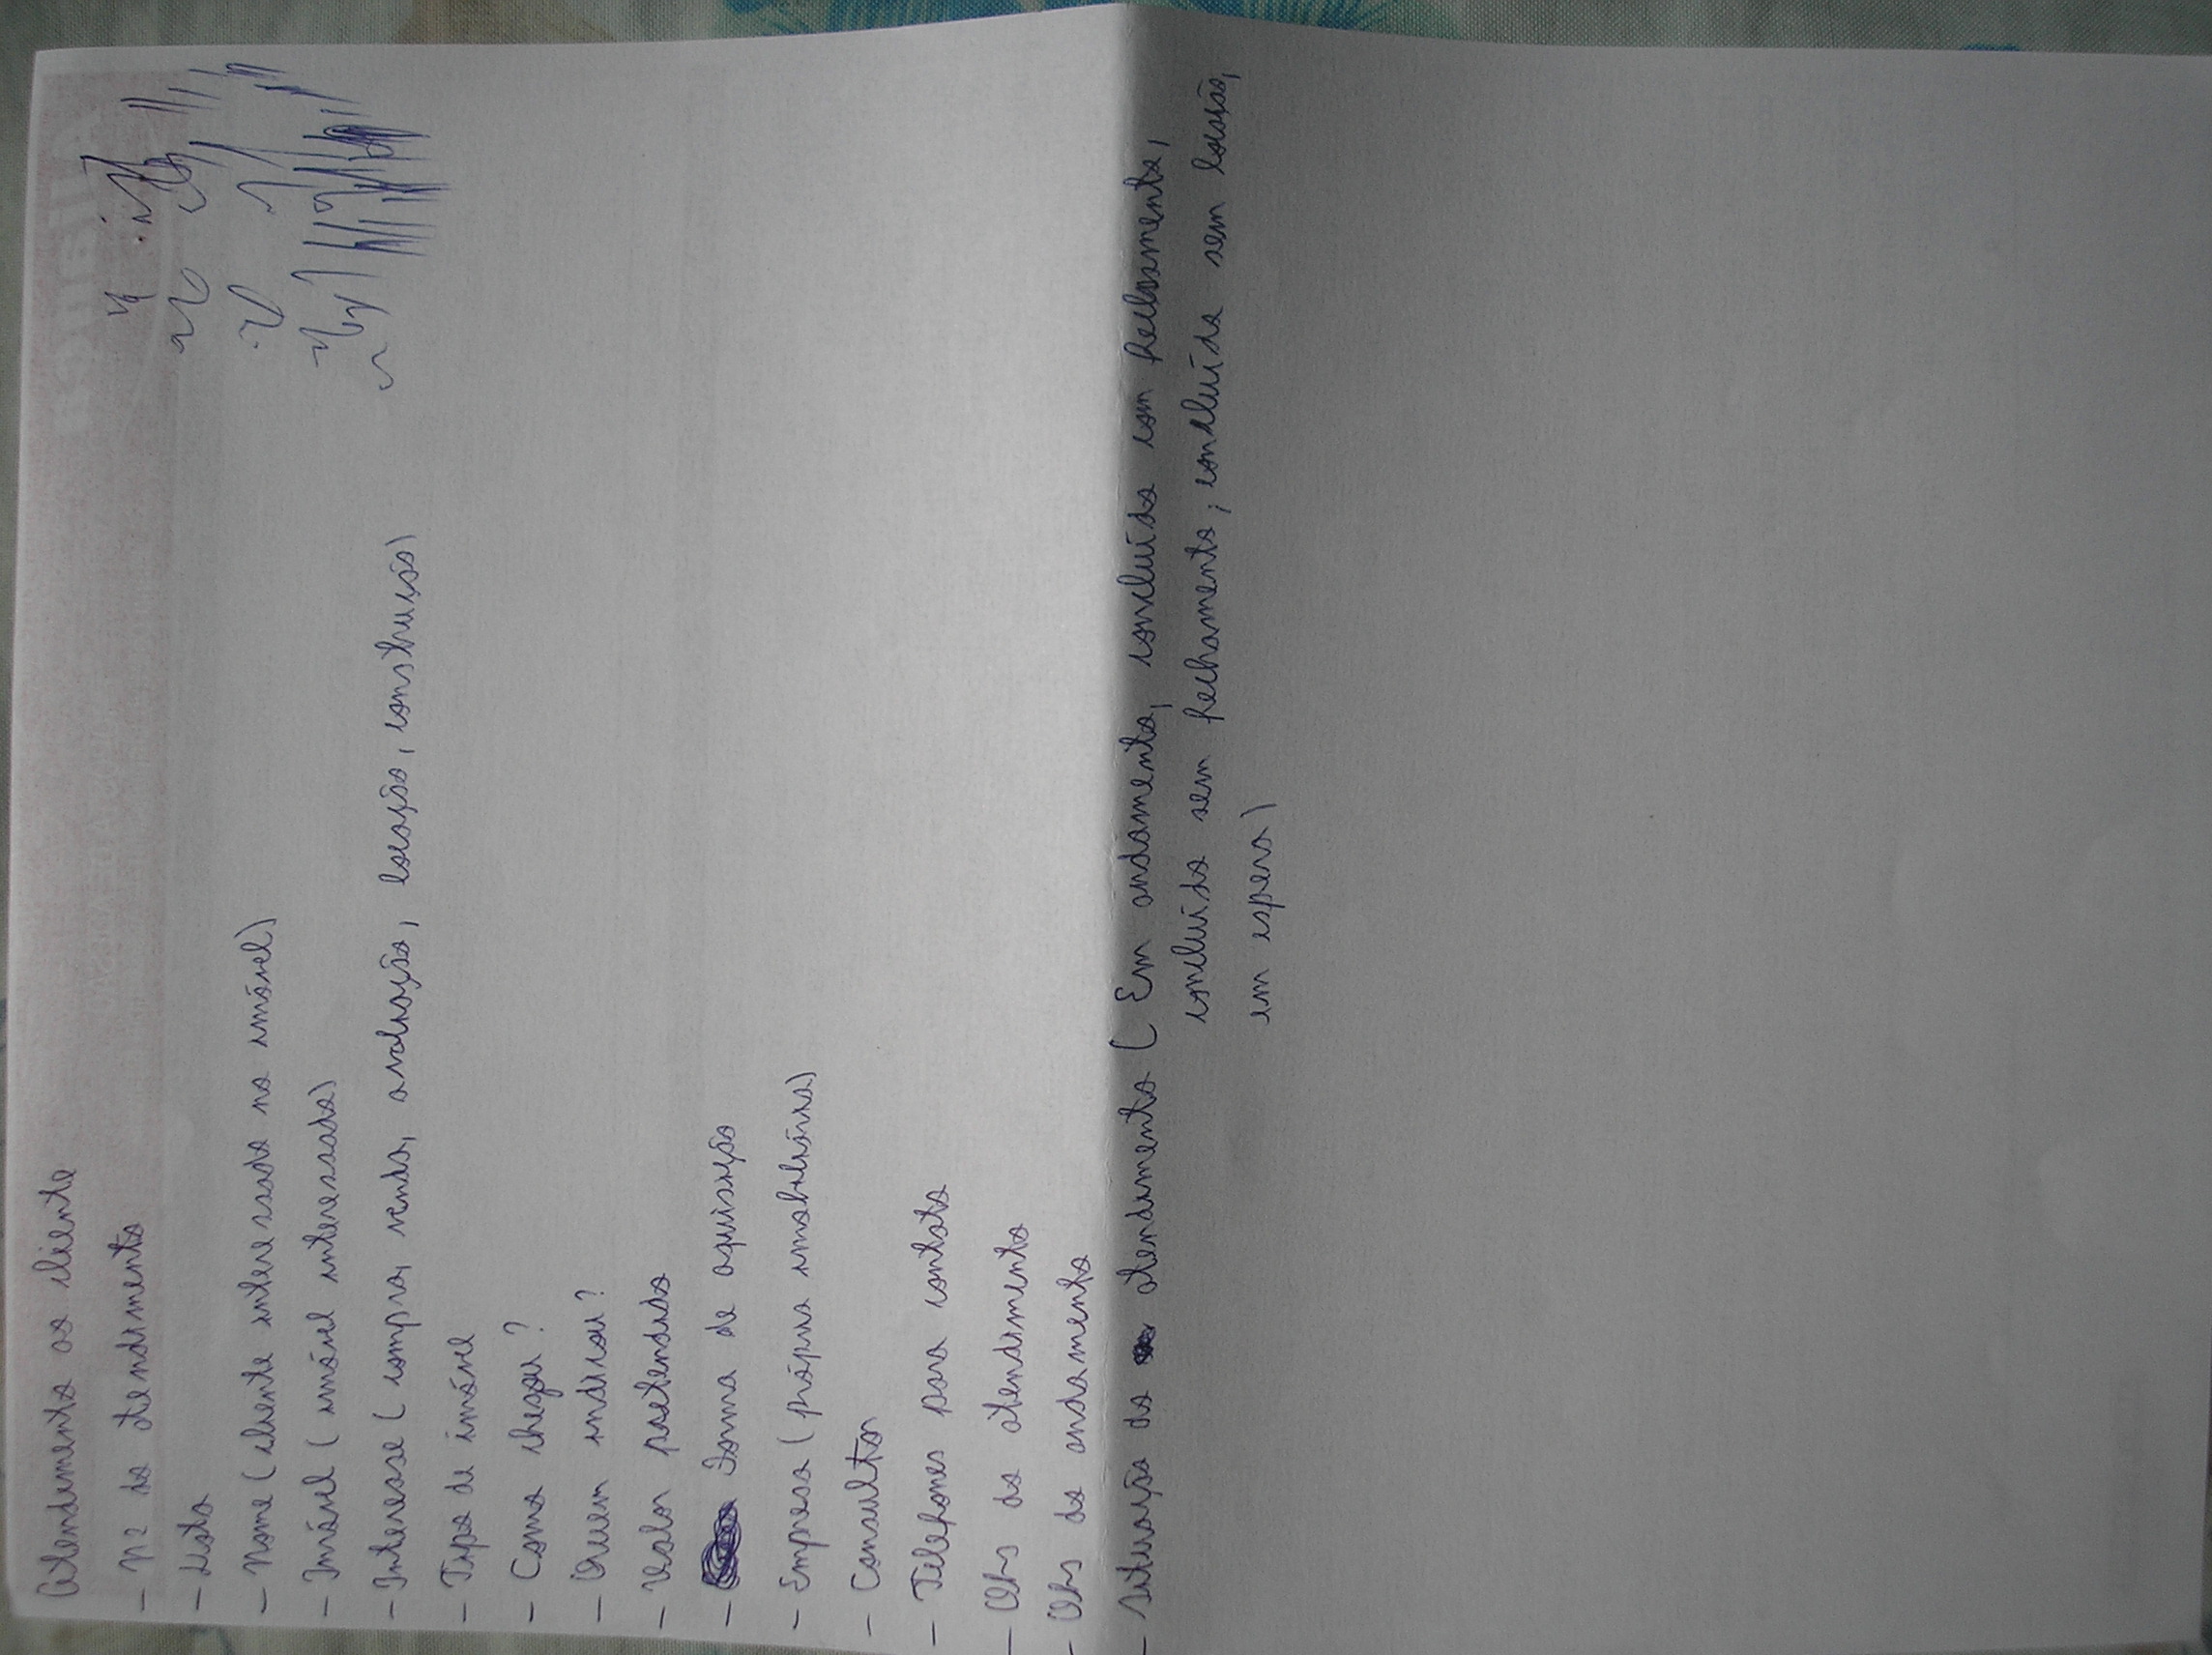 Atendimento ao cliente
- Nº do atendimento
- Data
- Nome (cliente interessado no imóvel)
- Imóvel (imóvel interessado)
- Interesse (compra, venda, avaliação, locação, construção)
- Tipo de imóvel
- Como chegou?
- Quem indicou?
- Valor pretendido
- Forma de aquisição
- Empresa (própria imobiliária)
- Consultor
- Telefones para contato
- Obs do atendimento
- Obs do andamento
- situação do atendimento (Em andamento, concluído com fechamento,
concluído sem fechamento, concluída sem locação,
em espera)